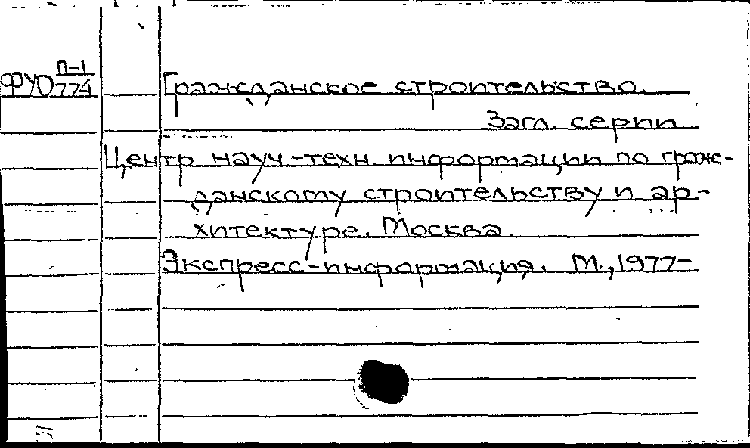 ФУО П-1/774 Гражданское строительство.
Загл. серии
Центр науч.-техн. информации по граж-
данскому строительству и ар-
хитектуре. Москва.
Экспресс-информация. М., 1977-